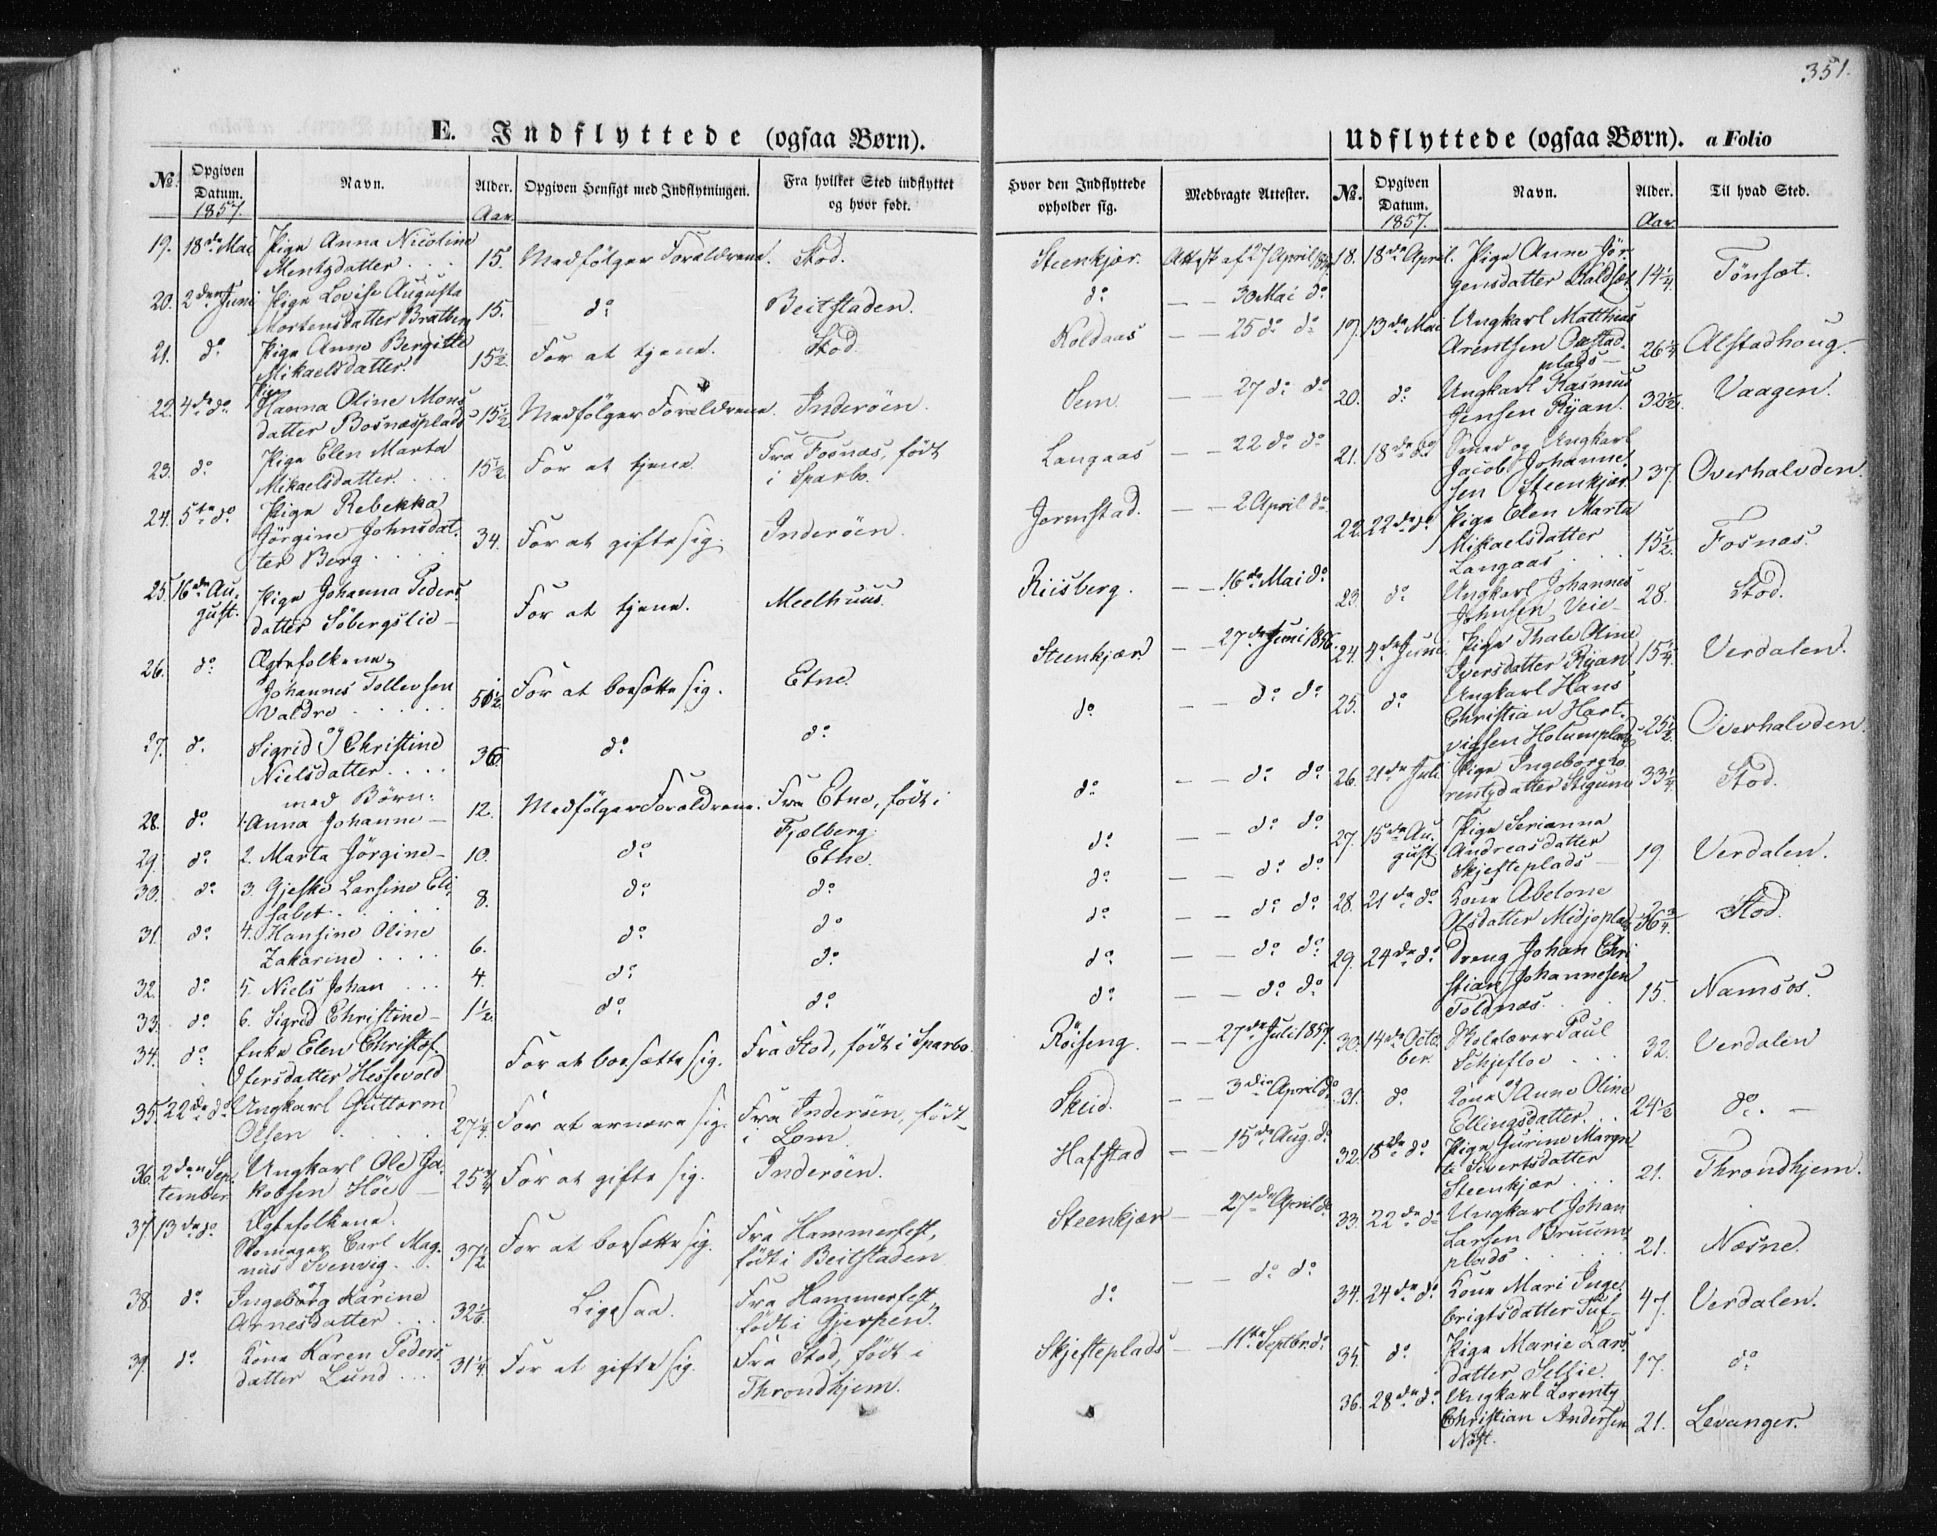 351.
E. Indflyttede (ogsaa Børn).
No. Opgiven Datum. Navn. Alder. Opgiven Hensigt med Indflytningen. Fra hvilket Sted indflyttet og hvor født. Hvor den Indflyttede opholder sig. Medbragte Attester.
1857. Aar.
19. 18de Mai Pige Anna Nicoline
Mentzdatter . . . 15. Medfølger Forældrene. Stod. Steenkjær. Attest af 27 April
20. 2den Juni Pige Lovise Augusta
Mortensdatter Bratberg 15. do Beitstaden. do — — 30 Mai do
21. do Pige Anne Bergitte
Mikaelsdatter. 15½. For at tjene. Stod. Koldaas — — 25 do do
22. 4de do Pige Hanna Oline Mons
datter Bosnæsplads 15½ Medfølger Forældrene. Inderøen. Sem. — 27 do do
23. do Pige Elen Marta
Mikaelsdatter. . . 15½. For at tjene Fra Fosnæs, født
i Sparbo. Langaas — — 22 do do
24. 5te do Pige Rebekka
Jørgine Johnsdat-
ter Berg . . . . 34. For at gifte sig. Inderøen. Jormstad. — — 2 April do
25. 16de Au-
gust. Pige Johanna Peders
datter Söbergslie — For at tjene. Meelhuus. Riisberg. — — 16de Mai do
26. do Ægtefolkene
Johannes Tollevsen
Valdre . . . . . 50½. For at bosætte sig. Etne. Steenkjær — — 27de Juni 1856.
27. do og
Sigrid Christine
Nielsdatter . . . . 36 do do do — — do do
med Börn:
28. do 1. Anna Johanne — 12. Medfølger Forældrene. Fra Etne, født i
Fjælberg do — — do do
29. do 2. Marta Jörgine — 10. do Etne. do — — do do
30. do 3. Gjeske Larsine Eli-
sabet . . . . . 8. do do do — — do do
31. do 4. Hansine Oline
Zakarine . . . . 6. do do do — — do do
32. do 5. Niels Johan . . . 4. do do do — — do do
33. do 6. Sigrid Christine — 1½. do do do — — do do
34. do Enke Elen Christof-
fersdatter Hessevold For at bosætte sig. Fra Stod, født i Sparbo. Röiseng. — — 27de Juli 1857.
35. 22de do Ungkarl Guttorm
Olsen . . . . . 27¼. For at ernære sig. Fra Inderøen, født
i Lom. Skeid. — — 3die April do
36. 2den Sep-
tember Ungkarl Ole Ja-
kobsen Höe — 25¾ For at gifte sig. Inderøen. Hafstad — — 15de Aug. do
37. 13de do Ægtefolkene.
Skomager Carl Mag-
nus Svenvig . . . 37½ For at bosætte sig. Fra Hammerfest,
født i Beitstaden Steenkjær — 27de April do
38. do og
Ingeborg Karine
Arnesdatter . . . 32 Ligesaa. Fra Hammerfest
født i Gjerpen. do — — do do
39. do Kone Karen Peders
datter Lund . . . 31¼. For at gifte sig. Fra Stod, født i
Throndhjem. Skjefteplads — — 11te Septbr. do
Udflyttede (ogsaa Børn). a Folio
No. Opgiven Datum. Navn. Alder. Til hvad Sted.
1857. Aar
18. 18de April. Pige Anne Jör-
gensdatter Haldset 14¼ Tönsæt.
19. 13de Mai Ungkarl Matthias
Arentsen Oxstad-
plads — 26¾ Alstadhoug.
20. do Ungkarl Rasmus
Jensen Ryan. 32½. Vaagen.
21. 18de do Smed og Ungkarl
Jacob Johanne-
sen Steenkjær 37. Overhalvden.
22. 22de do Pige Elen Marta
Mikaelsdatter
Langaas . . . 15½. Fosnæs.
23. do Ungkarl Johannes
Johnsen Veie — 28. Stod.
24. 4de Juni Pige Thale Oline
Iversdatter Ryan 15¼ Verdalen.
25. do Ungkarl Hans
Christian Hart-
vigsen Holumplads 25½. Overhalvden.
26. 21de Juli Pige Ingeborg Lo-
rentzdatter Stigum 33¼ Stod.
27. 15de Au-
gust Pige Serianna
Andreasdatter
Skjefteplads — 19 Verdalen.
28. 21de do Kone Abelone
Olsdatter Midjoplads 36¾ Stod.
29. 24de do Dreng Johan Chri
stian Johannesen
Toldnæs. . . . 15. Namsos.
30. 14de Octo-
ber. Skolelærer Paul
Schjefloe . . . 32. Verdalen
31. do og
Kone Anne Oline
Ellingsdatter . . 24½ do. —
32. 18de do Pige Gurine Margre
te Sivertsdatter
Steenkjær . . . 21. Throndhjem.
33. 22de do Ungkarl Johan
Larsen Bruum-
plads . . . . . 21. Næsne.
34. 24de do Kone Mari Inge-
brigtsdatter Tuf- 47. Verdalen.
35. do Pige Marie Lars
datter Sellie. 17. do
36. 28de do Ungkarl Lorentz
Christian Andersen
Nöst. 21. Levanger.